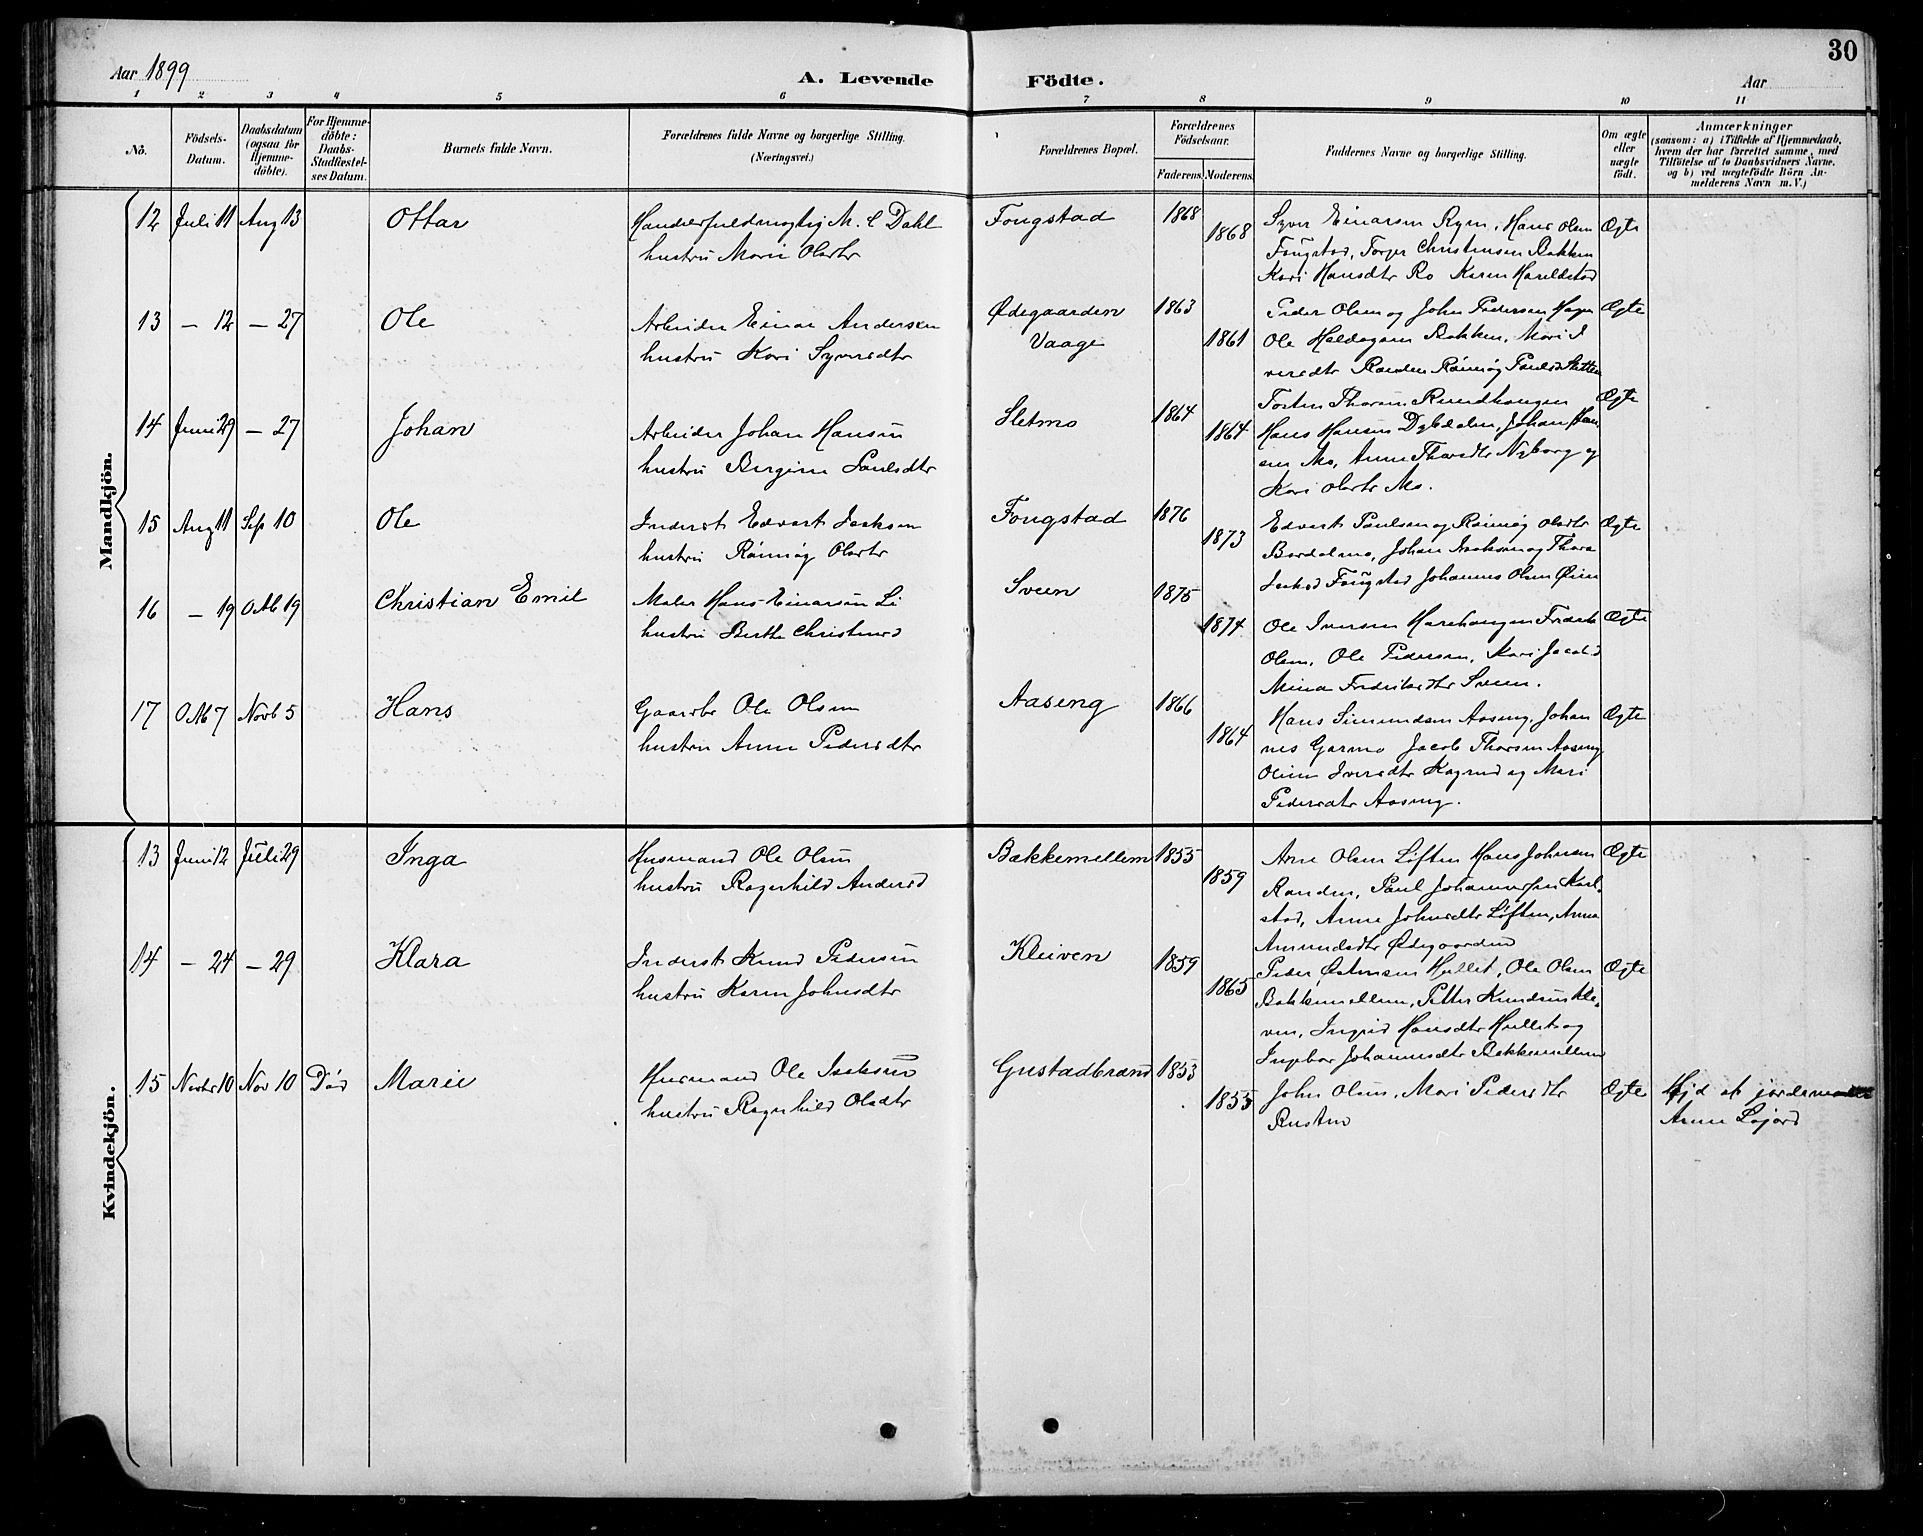 30
Aar 1899
A. Levende Födte.
Aar
1 2 3 4 5 6 7 8 9 10 11
Nô.
Födsels-Datum.
Daabsdatum (ogsaa for Hjemme-döbte).
For Hjemme-döbte: Daabs-Stadfæstel-ses Datum.
Barnets fulde Navn.
Forældrenes fulde Navne og borgerlige Stilling. (Næringsvei.)
Forældrenes Bopæl.
Forældrenes Födselsaar.
Faderens. Moderens.
Faddernes Navne og borgerlige Stilling.
Om ægte eller uægte födt.
Anmærkninger
(saasom: a) i Tilfælde af Hjemmedaab, hvem der har forrettet samme, med Tilföielse af to Daabsvidners Navne, og b) ved uægtefödte Börn An-melderens Navn m. V.)
Mandkjön.
12 Juli 11 Aug 13 Ottar
M. C Dahl
hustru Marie Olsdtr
Fougstad 1868 1868
Syver Einarsen Rym, Hans Olsen
Fougstad, Torger Christensen Bakken
Kari Hansdtr Ro Karen Harildstad
Ægte
13 – 12 – 27 Ole
Arbeider Einar Andersen
hustru Kari Syversdtr
Ødegaarden
Vaage
1863 1861
Peder Olsen og John Pedersen Hagen
Ole Haldogsen Bakken, Mari I
versdtr Randen Rønnøg Paulsd
Ægte
14 Juni 29 – 27 Johan
Arbeider Johan Hansen
hustru Bergine Paulsdtr
Sletmo 1864 1864
Tosten Thorsen Rundhaugen
Hans Hansen Dybdalen, Johan Han
sen Mo, Anne Thorsdtr Nyborg og
Kari Olsdtr Mo.
Ægte
15 Aug 11 Sep 10 Ole
Inderst Edvart Isaksen
hustru Rønnøg Olsdtr
Fougstad 1876 1873
Edvart Paulsen og Rønnøg Olsdtr
Bardalmo, Johan Isaksen og Thora
Isaksd Fougstad Johannes Olsen Øien
Ægte
16 – 19 Oktb 19 Christian Emil
Maler Hans Einarsen Li
hustru Berthe Christensd
Sveen 1875 1874
Ole Iversen Harehaugen Fredrik
Olsen, Ole Pedersen, Kari Jacobsd
Mina Fredriksdtr Sveen.
Ægte
17 Oktb 7 Novb 5 Hans
Gaardbr Ole Olsen
hustru Anne Pedersdtr
Aaseng 1866 1864
Hans Simundsen Aaseng, Johan
nes Garmo Jacob Thorsen Aaseng
Oline Iversdtr Kogrud og Mari
Pedersdtr Aaseng.
Ægte
Kvindekjön.
13 Juni 12 Juli 29 Inga
Husmand Ole Olsen
hustru Ragnhild Andersd
Bakkemellem 1855 1859
Arne Olsen Løften Hans Johnsen
Randen, Paul Johannessen Karl-
stad, Anne Johnsdtr Løften, Anna
Amundsdtr Ødegaarden
Ægte
14 – 24 – 29 Klara
Inderst Knud Pedersen
hustru Karen Johnsdtr
Kleiven 1859 1865
Peder Østensen Hullet, Ole Olsen
Bakkemellem, Petter Knudsen Kle-
ven, Ingrid Hansdtr Hullet og
Ingebor Johannesdtr Bakkemellem
Ægte
15 Novbr 10 Nov 10 Död Marie
Husmand Ole Isaksen
hustru Ragnhild Olsdtr
Gustadbrænd 1853 1855
John Olsen, Mari Pedersdtr
Rusten
Ægte
Hjd af jordemoder
Anne Løjord